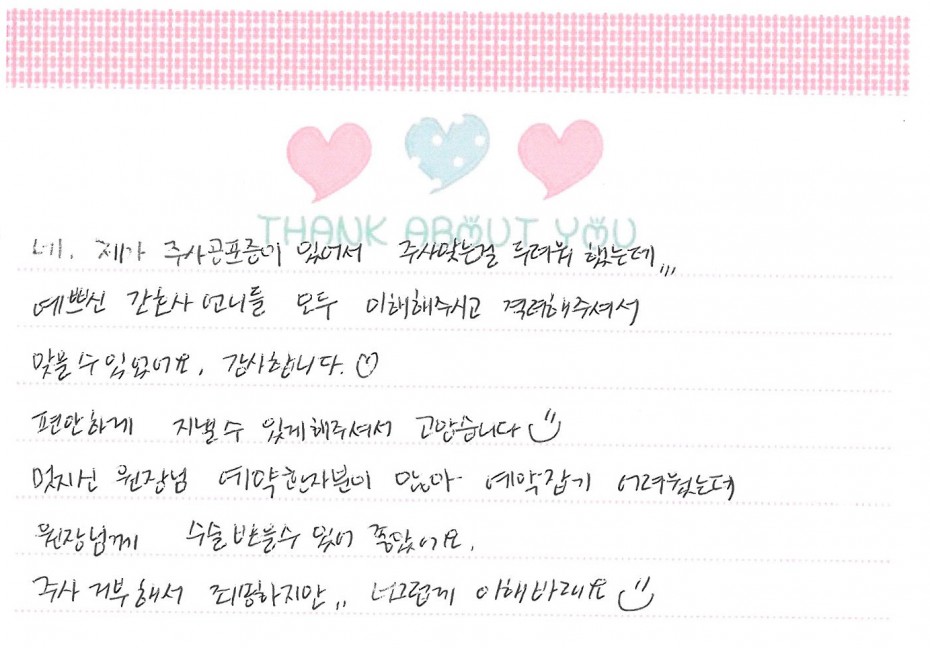 THANK ABOUT YOU
네. 제가 주사공포증이 있어서 주사맞는걸 두려워 했는데,,,
예쁘신 간호사 언니들 모두 이해해주시고 격려해주셔서
맞을 수 있었어요. 감사합니다.♡
편안하게 지낼수 있게해주셔서 고맙습니다
멋지신 원장님 예약환자분이 많아 예약잡기 어려웠는데
원장님께 수술받을수 있어 좋았어요.
주사 거부해서 죄송하지만,, 너그럽게 이해바래요